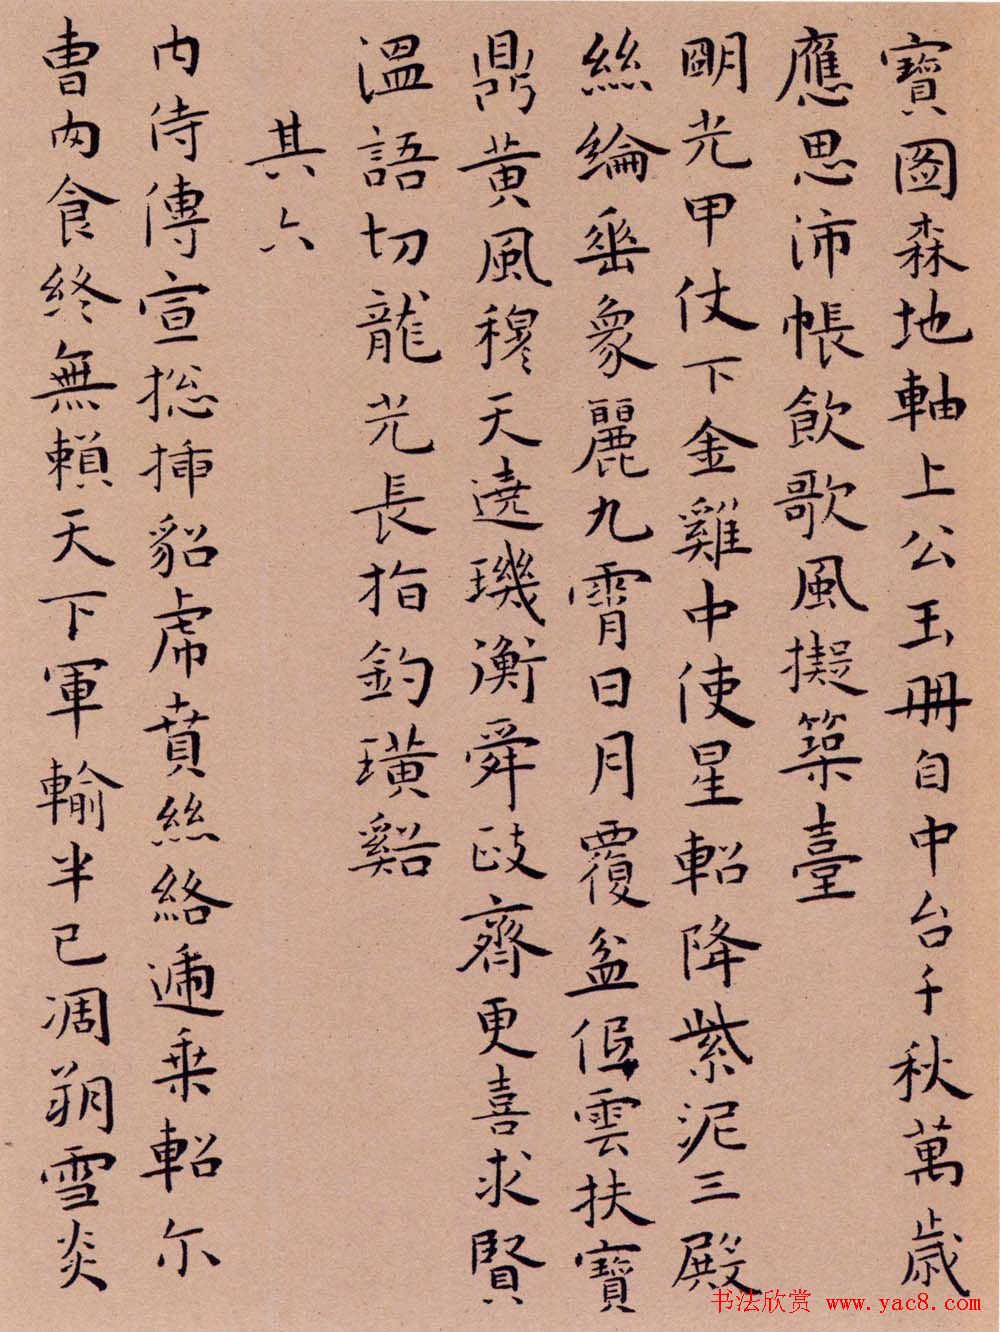 寶圖森地軸上公玉冊自中台千秋萬歲
應思沛帳飲歌風擬築臺
明光甲仗下金雞中使星軺降紫泥三殿
絲綸垂象麗九霄日月覆盆低雲扶寶
鼎黃風穆天遶璣衡舜歧齊更喜求賢
溫語切龍光長指釣璜谿
其六
內侍傳宣摠揷貂虎賁絲絡遞乗軺尔
曹肉食終無賴天下軍輸半已凋朔雪炎
书法欣赏 www.yac8.com